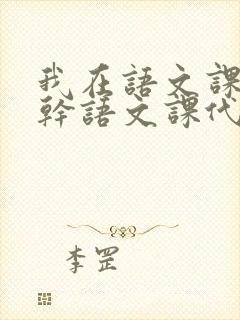 我在語文課
幹語文課代
李罡